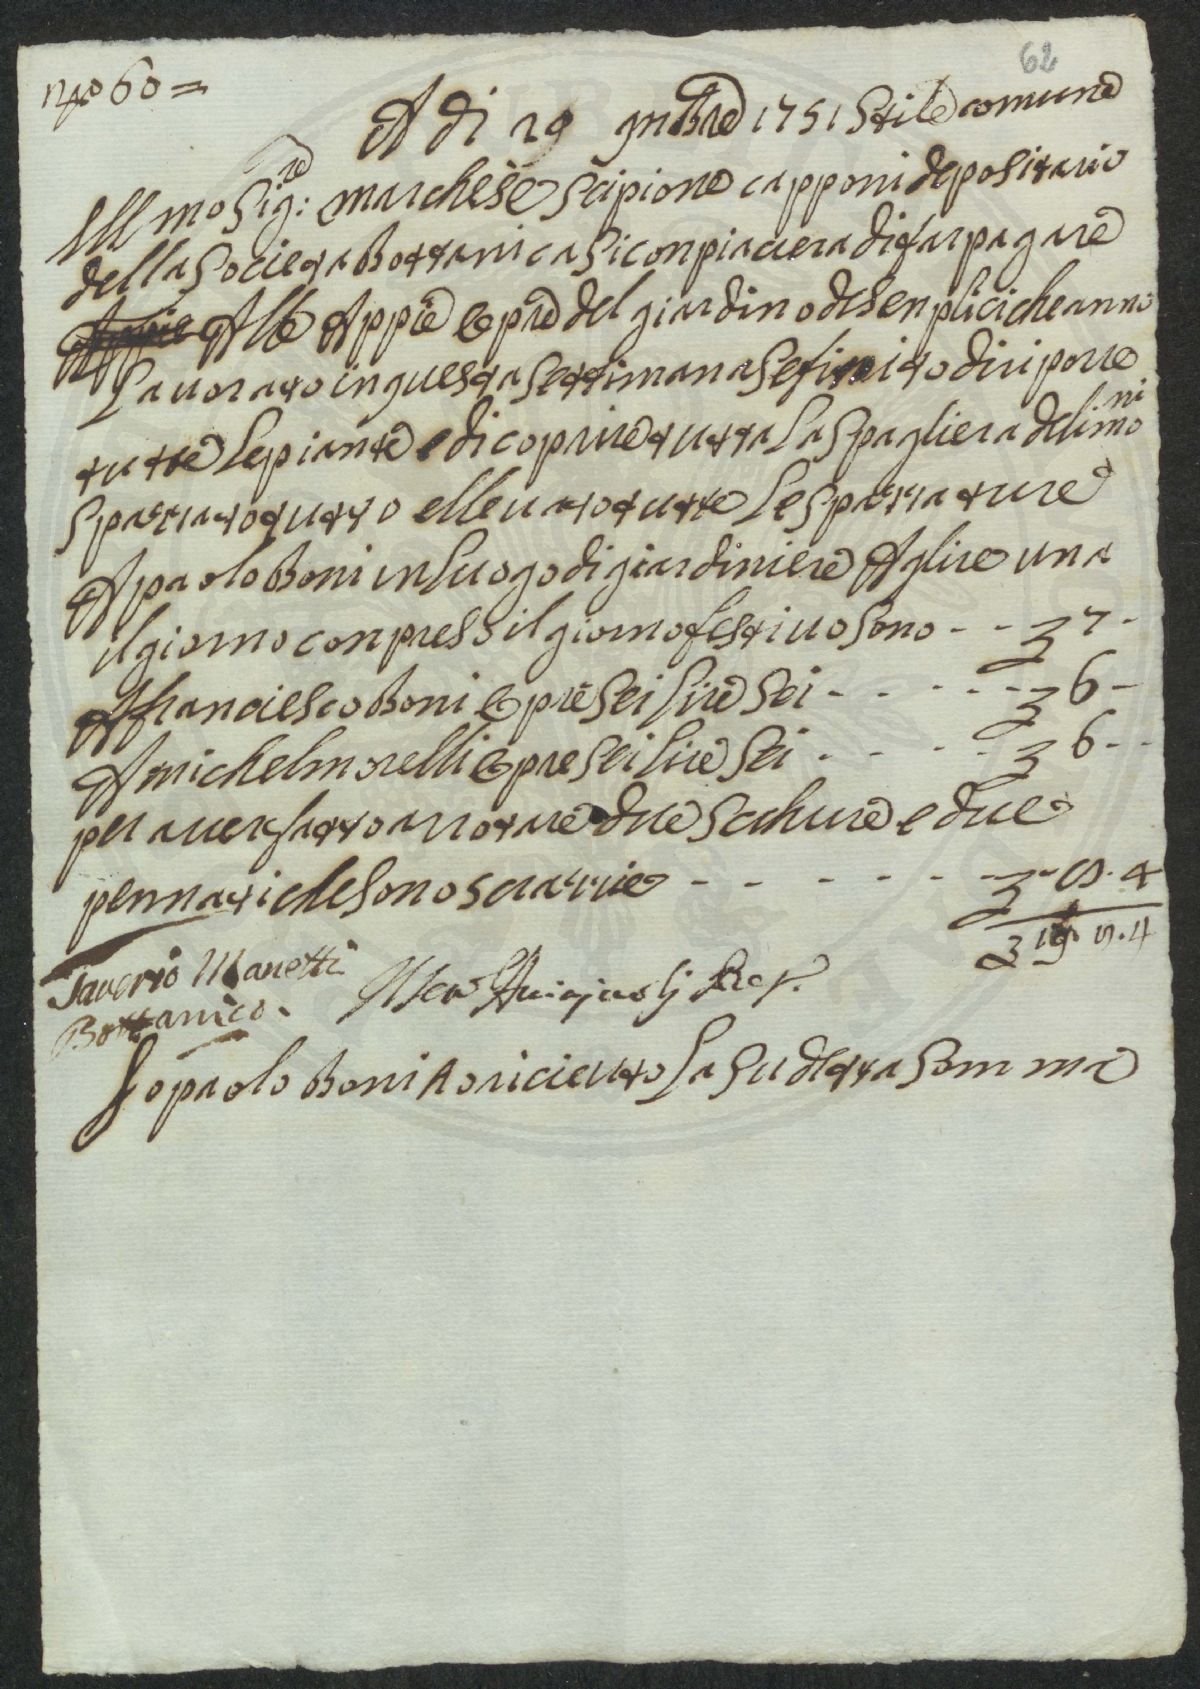 62
nro 60 =
A di 29 9mbre 1751 Stile comune
Ill mo Sig:re marchese Scipione capponi depositario
della Societa Bottanica Si conpiacera di far pagare
Alle Appie opre del giardino de Senplici che anno
Lauorato in questa Settimana Se finito di riporre
tutte Le piante e di coprire tutta La Spagliera de limoni
Spazzato tutto e lleuato tutte Le Spazzature
A paolo Boni in Luogo di giardiniere A lire una
il giorno conpreso il giorno festiuo Sono - - 3 7 -
A franciesco Boni opre Sei Lire Sei - - - - - - 3 6 -
A michel morelli opre Sei Lire Sei - - - - - 3 6 - -
per auer fatto arrotare due Schure e due
pennati che Sono Scrazzie - - - - - - - 3 - S. 4
3 19 S. 4
Saverio Manetti
Bottanico.
Io paolo Boni o riceuuto La Sudetta Somma